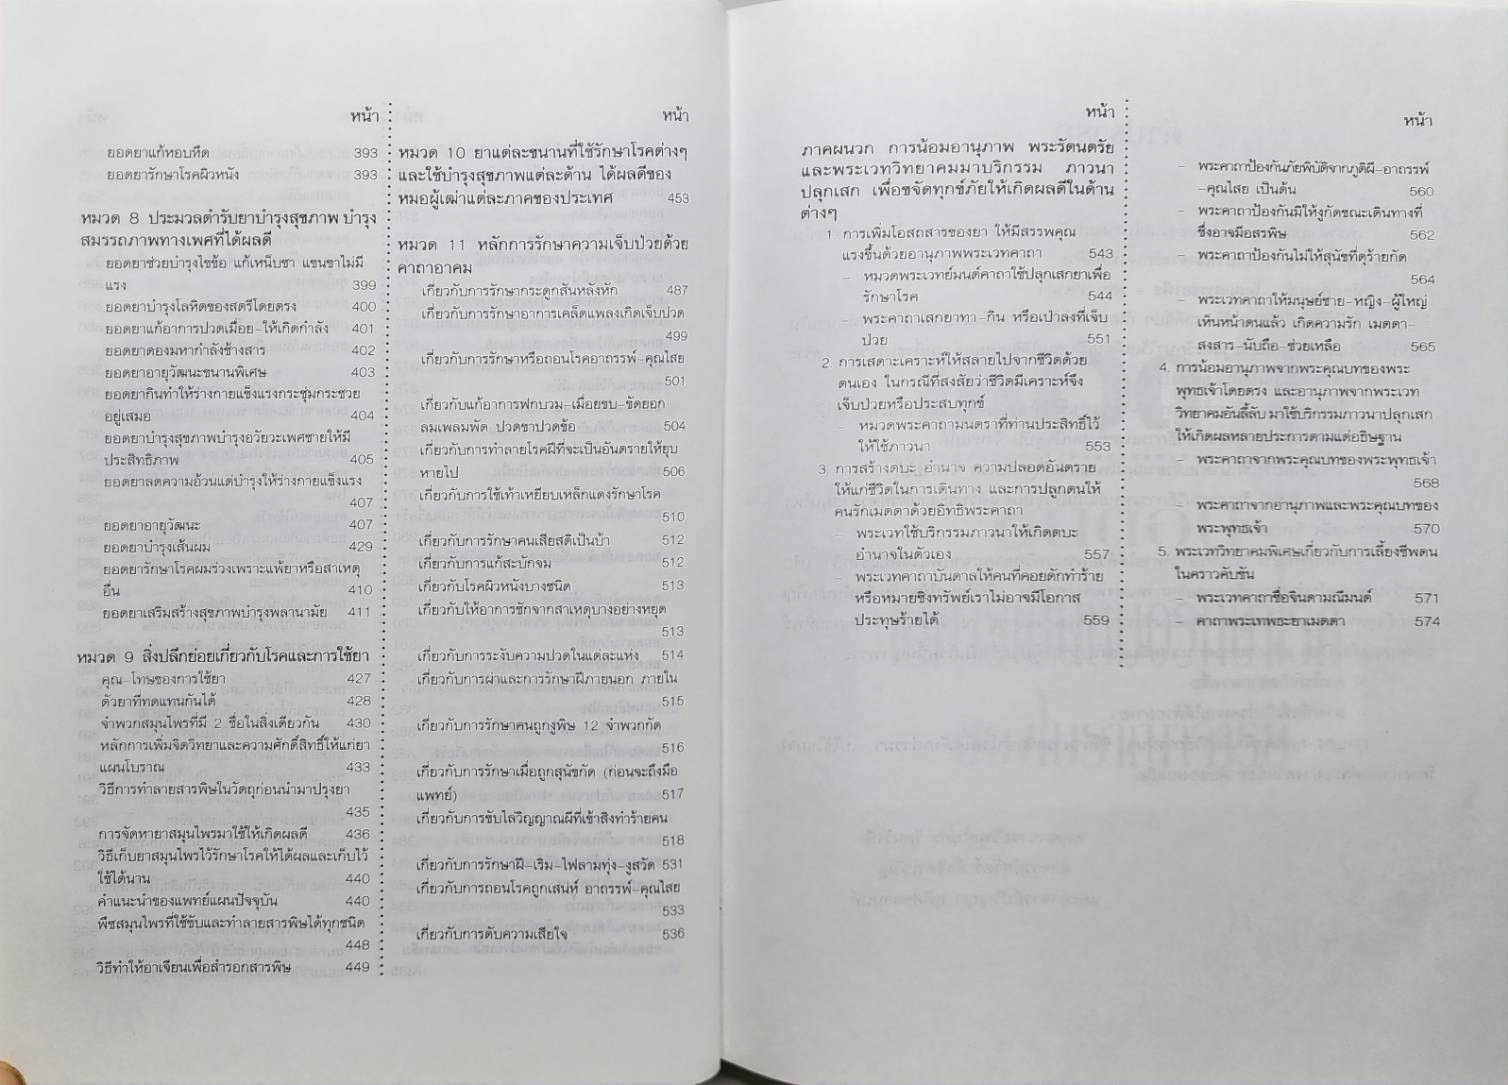 หน้า
ยอดยาแก้หอบหืด 393
ยอดยารักษาโรคผิวหนัง 393
หมวด 8 ประมวลตำรับยาบำรุงสุขภาพ บำรุง
สมรรถภาพทางเพศที่ได้ผลดี
ยอดยาช่วยบำรุงไขข้อ แก้เหน็บชา แขนขาไม่มี
แรง 399
ยอดยาบำรุงโลหิตของสตรีโดยตรง 400
ยอดยาแก้อาการปวดเมื่อย-ให้เกิดกำลัง 401
ยอดยาดองมหากำลังช้างสาร 402
ยอดยาอายุวัฒนะขนานพิเศษ 403
ยอดยากินทำให้ร่างกายแข็งแรงกระชุ่มกระชวย
อยู่เสมอ 404
ยอดยาบำรุงสุขภาพบำรุงอวัยวะเพศชายให้มี
ประสิทธิภาพ 405
ยอดยาลดความอ้วนแต่บำรุงให้ร่างกายแข็งแรง
407
ยอดยาอายุวัฒนะ 407
ยอดยาบำรุงเส้นผม 429
ยอดยารักษาโรคผมร่วงเพราะแพ้ยาหรือสาเหตุ
อื่น 410
ยอดยาเสริมสร้างสุขภาพบำรุงพลานามัย 411
หมวด 9 สิ่งปลีกย่อยเกี่ยวกับโรคและการใช้ยา
คุณ-โทษของการใช้ยา 427
ตัวยาที่ทดแทนกันได้ 428
จำพวกสมุนไพรที่มี 2 ชื่อในสิ่งเดียวกัน 430
หลักการเพิ่มจิตวิทยาและความศักดิ์สิทธิ์ให้แก่ยา
แผนโบราณ 433
วิธีการทำลายสารพิษในวัตถุก่อนนำมาปรุงยา
435
การจัดหายาสมุนไพรมาใช้ให้เกิดผลดี 436
วิธีเก็บยาสมุนไพรไว้รักษาโรคให้ได้ผลและเก็บไว้
ใช้ได้นาน 440
คำแนะนำของแพทย์แผนปัจจุบัน 440
พืชสมุนไพรที่ใช้ขับและทำลายสารพิษได้ทุกชนิด
448
วิธีทำให้อาเจียนเพื่อสำรอกสารพิษ 449
หน้า
หมวด 10 ยาแต่ละขนานที่ใช้รักษาโรคต่างๆ
และใช้บำรุงสุขภาพแต่ละด้าน ได้ผลดีของ
หมอผู้เฒ่าแต่ละภาคของประเทศ 453
หมวด 11 หลักการรักษาความเจ็บป่วยด้วย
คาถาอาคม
เกี่ยวกับการรักษากระดูกสันหลังหัก 487
เกี่ยวกับการรักษาอาการเคล็ดแพลงเกิดเจ็บปวด
499
เกี่ยวกับการรักษาหรือถอนโรคอาถรรพ์-คุณไสย
501
เกี่ยวกับแก้อาการฟกบวม-เมื่อยขบ-ขัดยอก
ลมเพลมพัด ปวดขาปวดข้อ 504
เกี่ยวกับการทำลายโรคฝีที่จะเป็นอันตรายให้ยุบ
หายไป 506
เกี่ยวกับการใช้เท้าเหยียบเหล็กแดงรักษาโรค
510
เกี่ยวกับการรักษาคนเสียสติเป็นบ้า 512
เกี่ยวกับการแก้สะบักจม 512
เกี่ยวกับโรคผิวหนังบางชนิด 513
เกี่ยวกับให้อาการชักจากสาเหตุบางอย่างหยุด
513
เกี่ยวกับการระงับความปวดในแต่ละแห่ง 514
เกี่ยวกับการผ่าและการรักษาฝีภายนอก ภายใน
515
เกี่ยวกับการรักษาคนถูกงูพิษ 12 จำพวกกัด
516
เกี่ยวกับการรักษาเมื่อถูกสุนัขกัด (ก่อนจะถึงมือ
แพทย์) 517
เกี่ยวกับการขับไล่วิญญาณผีที่เข้าสิงทำร้ายคน
518
เกี่ยวกับการรักษาฝี-เริม-ไฟลามทุ่ง-งูสวัด 531
เกี่ยวกับการถอนโรคถูกเสน่ห์ อาถรรพ์-คุณไสย
533
เกี่ยวกับการดับความเสียใจ 536
หน้า
ภาคผนวก การน้อมอานุภาพ พระรัตนตรัย
และพระเวทวิทยาคมมาบริกรรม ภาวนา
ปลุกเสก เพื่อขจัดทุกข์ภัยให้เกิดผลดีในด้าน
ต่างๆ
1. การเพิ่มโอสถสารของยา ให้มีสรรพคุณ
แรงขึ้นด้วยอานุภาพพระเวทคาถา 543
- หมวดพระเวทย์มนต์คาถาใช้ปลุกเสกยาเพื่อ
รักษาโรค 544
- พระคาถาเสกยาทา-กิน หรือเป่าลงที่เจ็บ
ป่วย 551
2. การเสดาะเคราะห์ให้สลายไปจากชีวิตด้วย
ตนเอง ในกรณีที่สงสัยว่าชีวิตมีเคราะห์จึง
เจ็บป่วยหรือประสบทุกข์
- หมวดพระคาถามนตราที่ท่านประสิทธิ์ไว้
ให้ใช้ภาวนา 553
3. การสร้างตบะ อำนาจ ความปลอดอันตราย
ให้แก่ชีวิตในการเดินทาง และการปลูกตนให้
คนรักเมตตาด้วยอิทธิพระคาถา
- พระเวทใช้บริกรรมภาวนาให้เกิดตบะ
อำนาจในตัวเอง 557
- พระเวทคาถาบันดาลให้คนที่คอยดักทำร้าย
หรือหมายชิงทรัพย์เราไม่อาจมีโอกาส
ประทุษร้ายได้ 559
หน้า
- พระคาถาป้องกันภัยพิบัติจากภูติผี-อาถรรพ์
-คุณไสย เป็นต้น 560
- พระคาถาป้องกันมิให้งูกัดขณะเดินทางที่
ซึ่งอาจมีอสรพิษ 562
- พระคาถาป้องกันไม่ให้สุนัขที่ดุร้ายกัด
564
- พระเวทคาถาให้มนุษย์ชาย-หญิง-ผู้ใหญ่
เห็นหน้าตนแล้ว เกิดความรัก เมตตา-
สงสาร-นับถือ-ช่วยเหลือ 565
4. การน้อมอานุภาพจากพระคุณบทของพระ
พุทธเจ้าโดยตรง และอานุภาพจากพระเวท
วิทยาคมอันลี้ลับ มาใช้บริกรรมภาวนาปลุกเสก
ให้เกิดผลหลายประการตามแต่อธิษฐาน
- พระคาถาจากพระคุณบทของพระพุทธเจ้า
568
- พระคาถาจากอานุภาพและพระคุณบทของ
พระพุทธเจ้า 570
5. พระเวทวิทยาคมพิเศษเกี่ยวกับการเลี้ยงชีพตน
ในคราวคับขัน
- พระเวทคาถาชื่อจินดามณีมนต์ 571
- คาถาพระเทพธะยาเมตตา 574